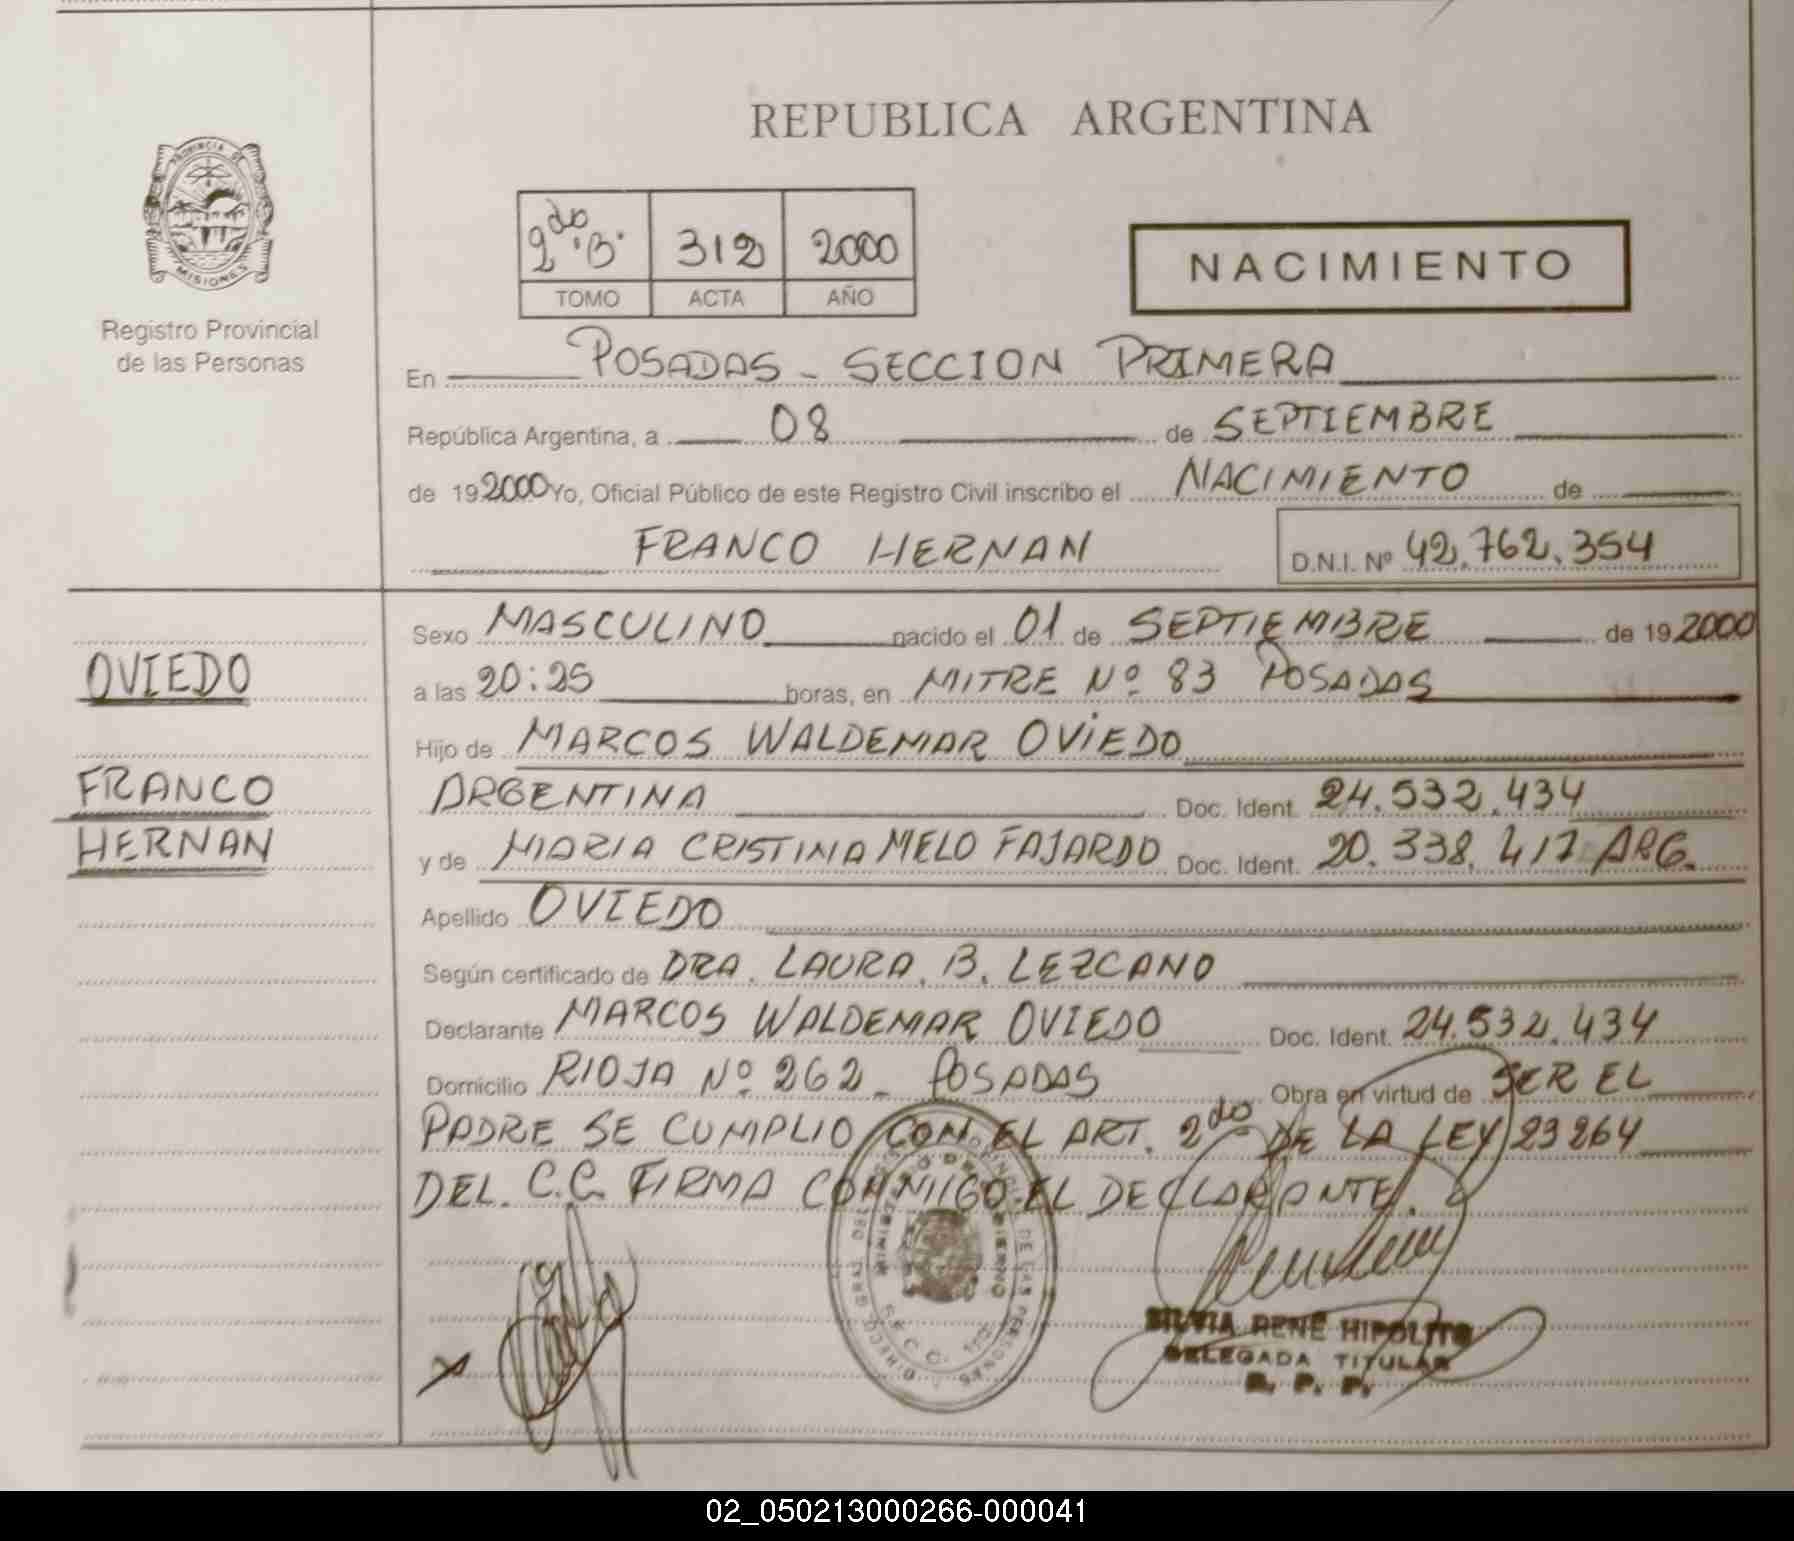 REPUBLICA ARGENTINA
PROVINCIA DE
MISIONES
Registro Provincial
de las Personas
2do "B" 312 2000
TOMO ACTA AÑO
NACIMIENTO
En POSADAS - SECCION PRIMERA
República Argentina, a 08 de SEPTIEMBRE
de 19 2000 Yo, Oficial Público de este Registro Civil inscribo el NACIMIENTO de
FRANCO HERNAN D.N.I. Nº 42.762.354
OVIEDO
FRANCO
HERNAN
Sexo MASCULINO nacido el 01 de SEPTIEMBRE de 19 2000
a las 20:25 horas, en MITRE Nº 83 POSADAS
Hijo de MARCOS WALDEMAR OVIEDO
ARGENTINA Doc. Ident. 24.532.434
y de MARIA CRISTINA MELO FAJARDO Doc. Ident. 20.338.417 ARG.
Apellido OVIEDO
Según certificado de DRA. LAURA. B. LEZCANO
Declarante MARCOS WALDEMAR OVIEDO Doc. Ident. 24.532.434
Domicilio RIOJA Nº 262 - POSADAS Obra en virtud de SER EL
PADRE SE CUMPLIO CON EL ART. 2do DE LA LEY 23264
DEL. C.C. FIRMA CONMIGO EL DECLARANTE.
SILVIA RENE HIPOLITO
DELEGADA TITULAR
R. P. P.
02_050213000266-000041